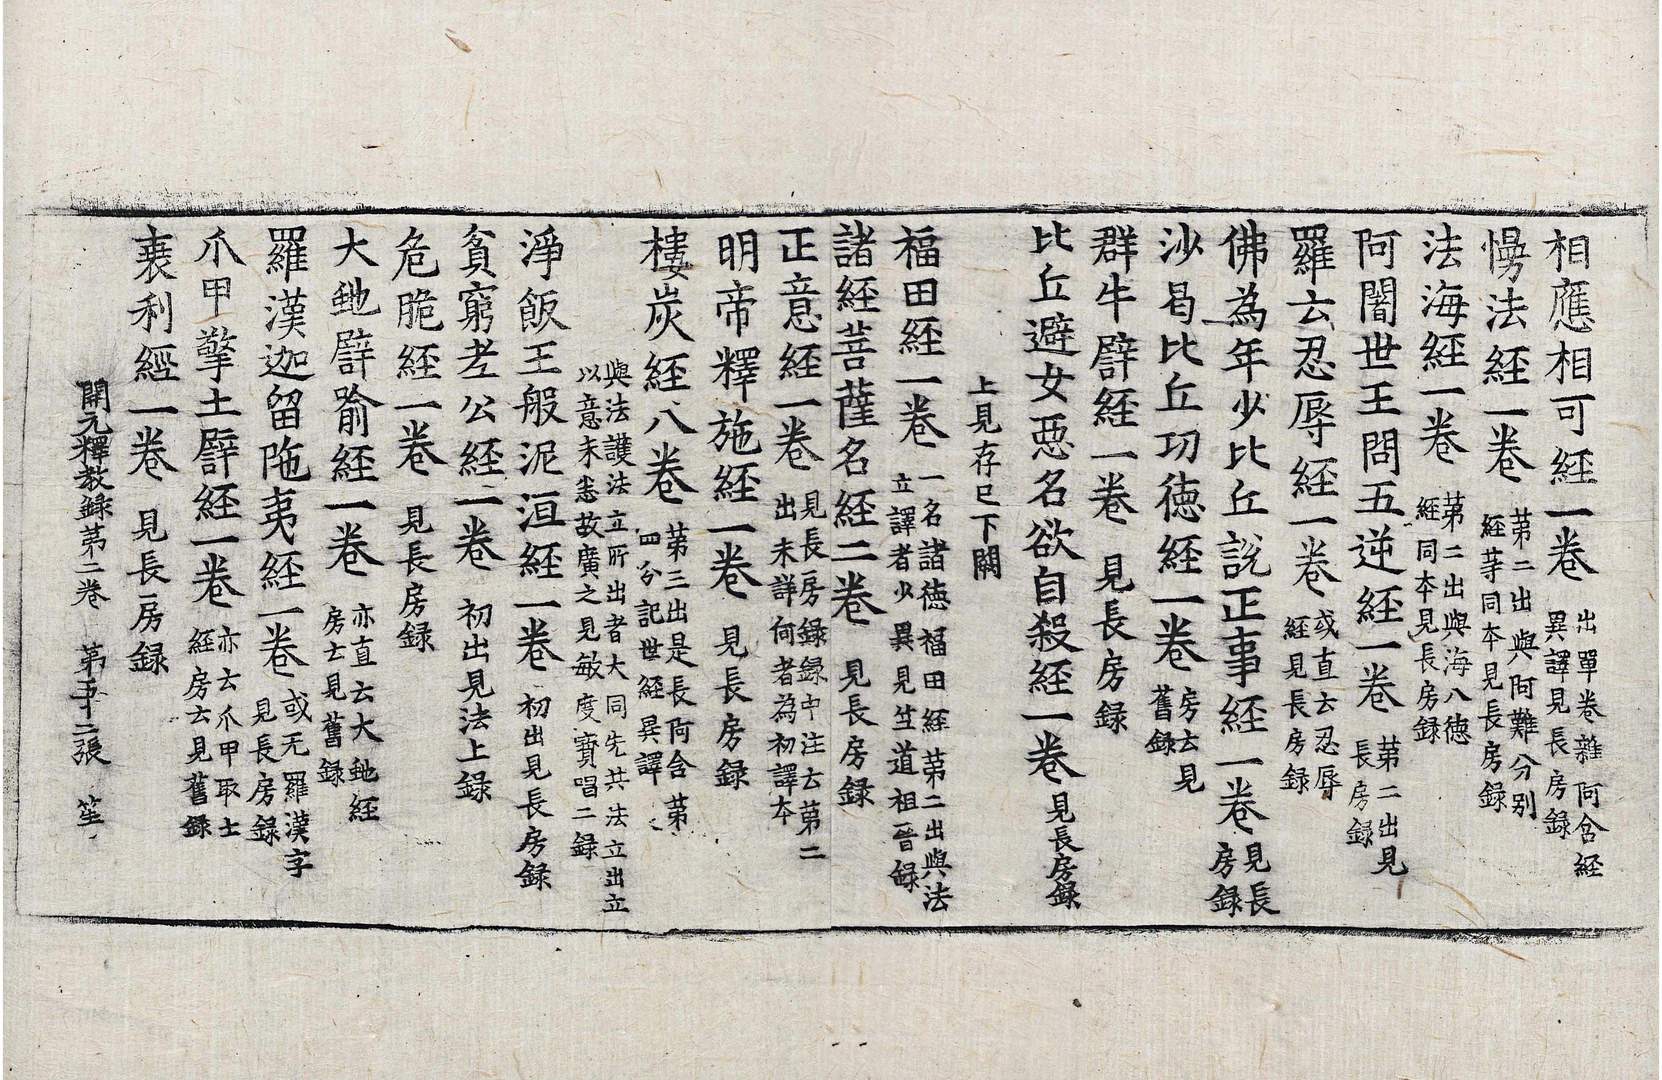 相應相可經一卷 出單卷雜阿含經異譯見長房錄
慢法經一卷 第二出與阿難分別經等同本見長房錄
法海經一卷 第二出與海八德經同本見長房錄
阿闍世王問五逆經一卷 第二出見長房錄
羅云忍辱經一卷 或直云忍辱經見長房錄
佛為年少比丘說正事經一卷 見長房錄
沙曷比丘功德經一卷 房云見舊錄
群牛譬經一卷 見長房錄
比丘避女惡名欲自殺經一卷 見長房錄
上見存已下闕
福田經一卷 一名諸德福田經第二出與法立譯者少異見竺道祖晉錄
諸經菩薩名經二卷 見長房錄
正意經一卷 見長房錄錄中注云第二出未詳何者為初譯本
明帝釋施經一卷 見長房錄
樓炭經八卷 第三出是長阿含第四分記世經異譯
與法護法立所出者大同先共法立出立以意未悉故廣之見敏度寶唱二錄
淨飯王般泥洹經一卷 初出見長房錄
貧窮老公經一卷 初出見法上錄
危脆經一卷 見長房錄
大虵譬喻經一卷 亦直云大虵經房云見舊錄
羅漢迦留陁夷經一卷 或无羅漢字見長房錄
爪甲擎土譬經一卷 亦云爪甲取土經房云見舊錄
衰利經一卷 見長房錄
開元釋教錄第二卷 第五十二張 笙